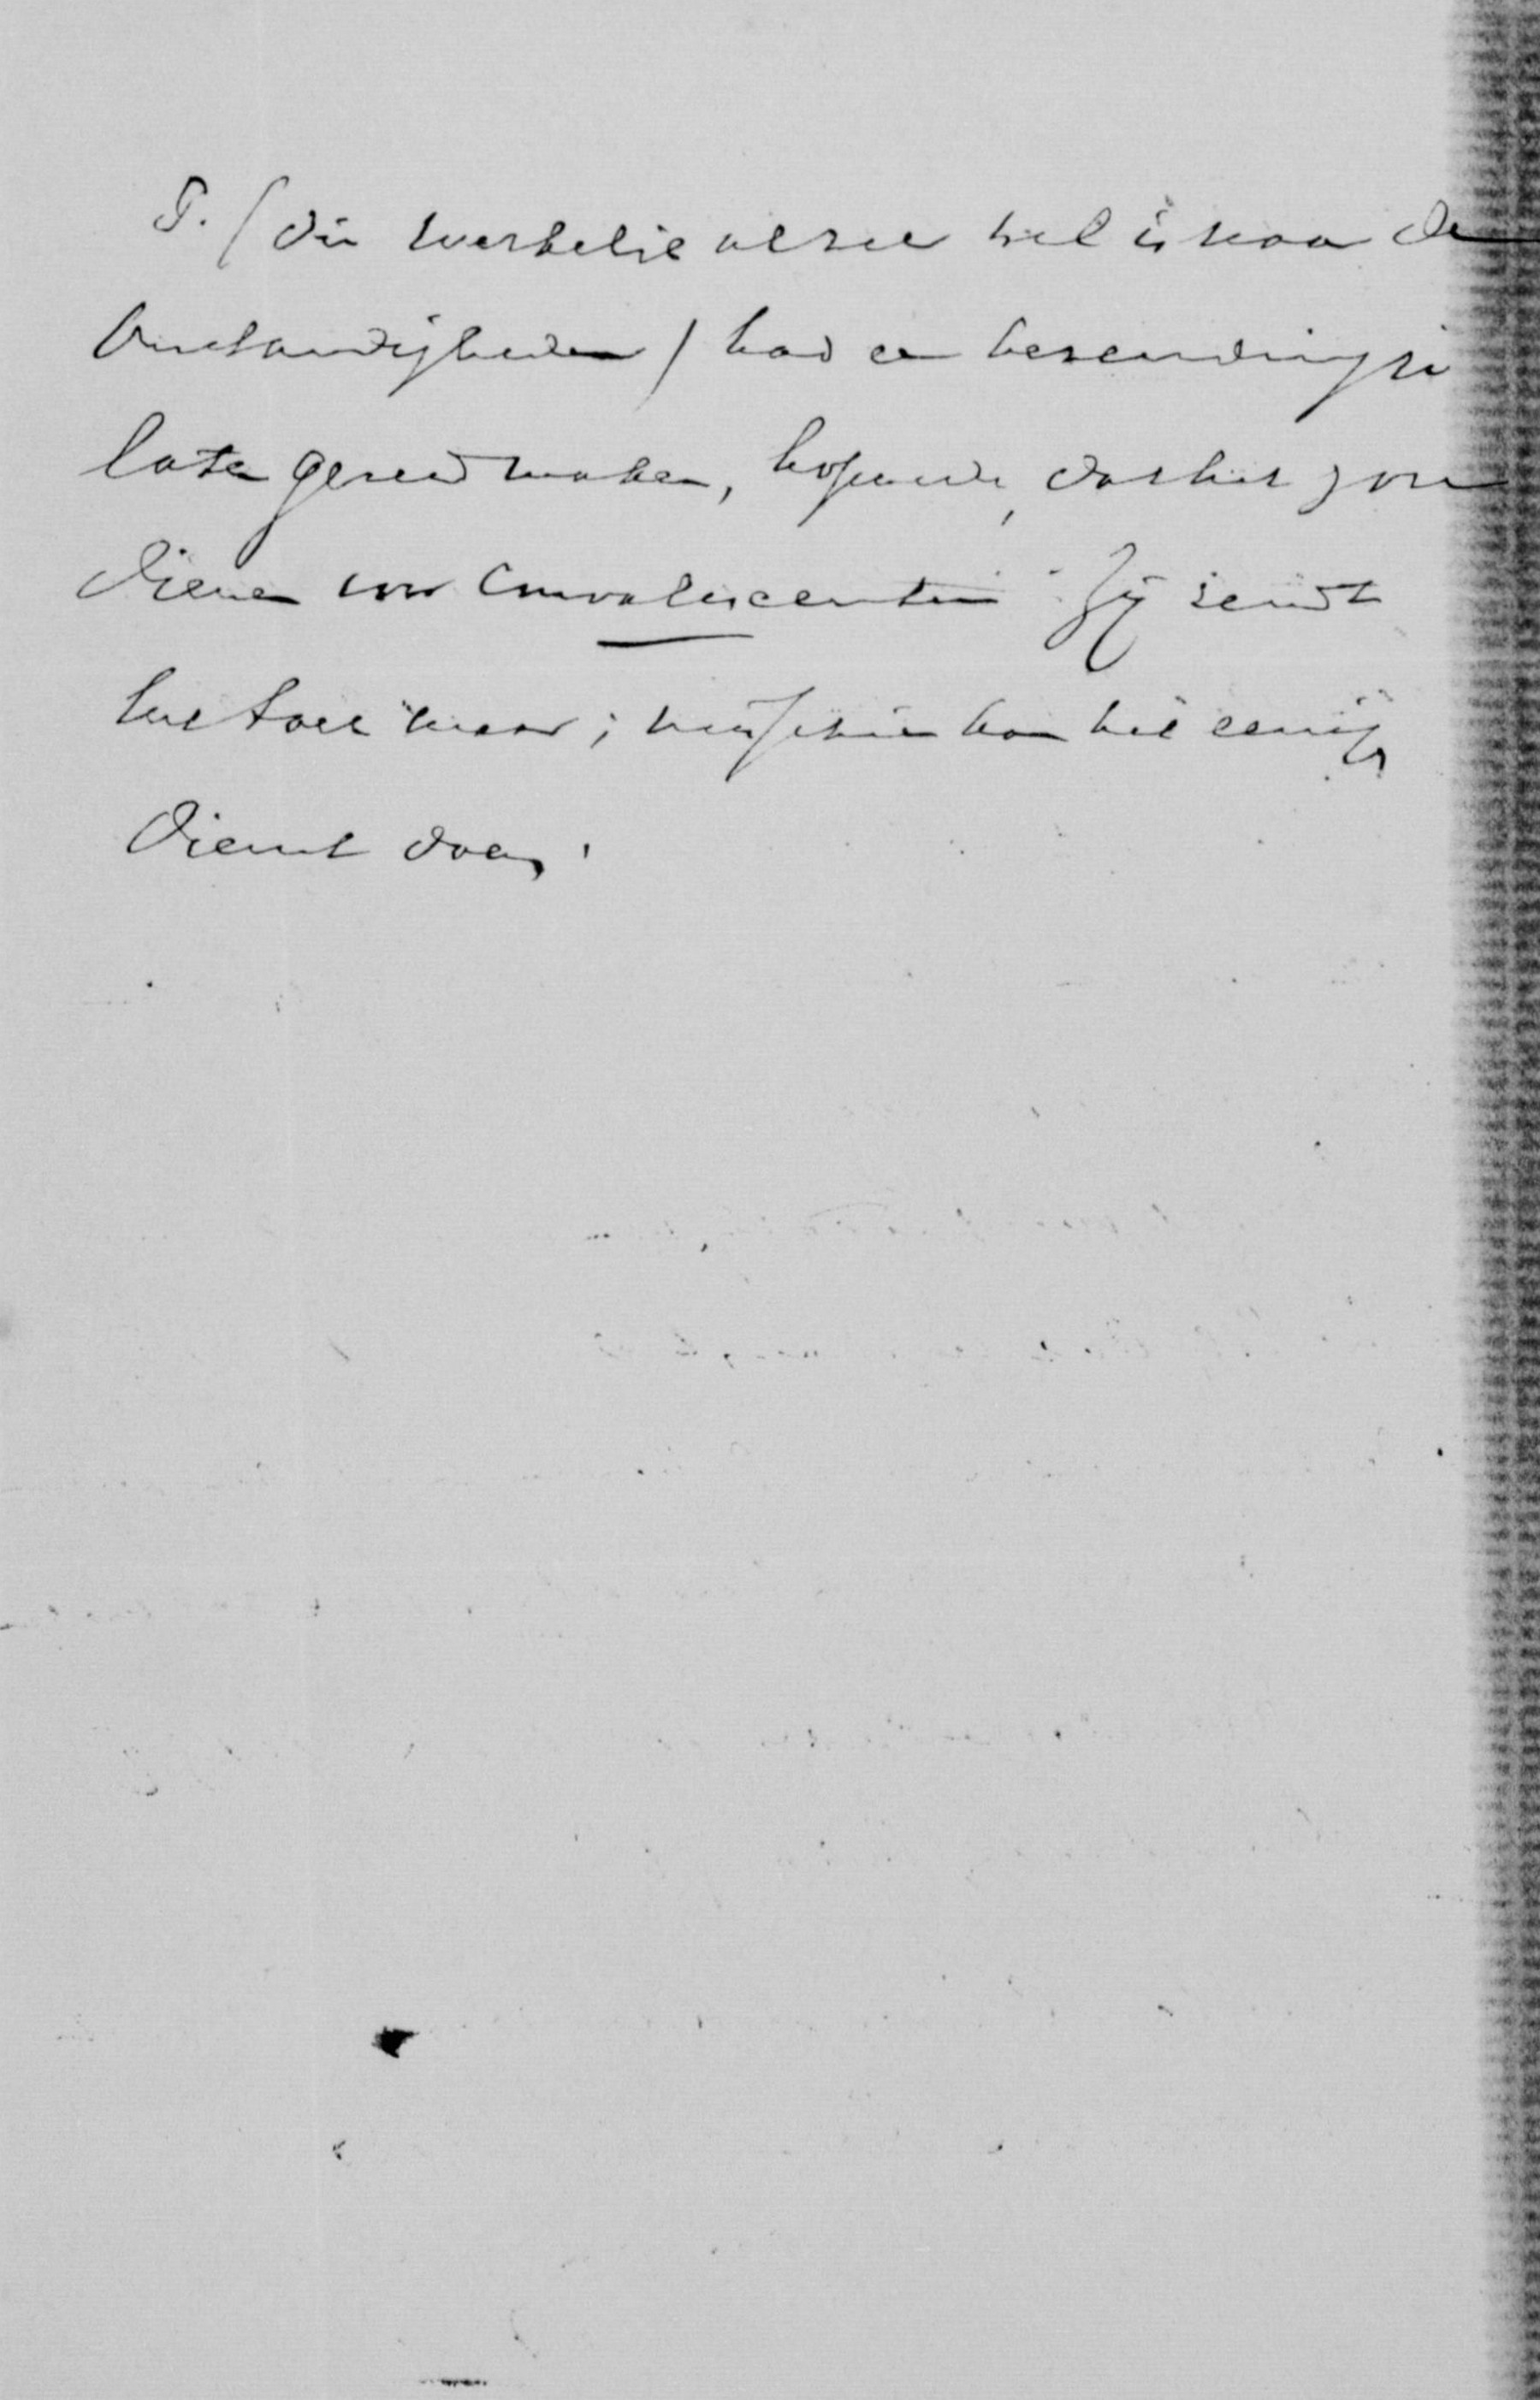 T. (die werkelijk alsee wel is naar de
omstandigheden) had een bezendingje
laten gereed maken, hopende, dat het zou
dienen voor convalescentie. Zij zendt
het toch maar; misschien kan het eenige
dienst doen.